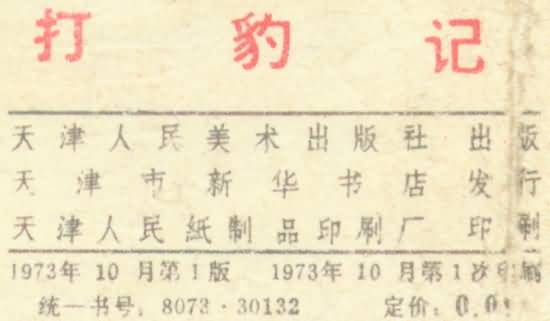 打豹记
天津人民美术出版社出版
天津市新华书店发行
天津人民紙制品印刷厂印刷
1973年10月第1版 1973年10月第1次印刷
统一书号:8073·30132 定价:0.0